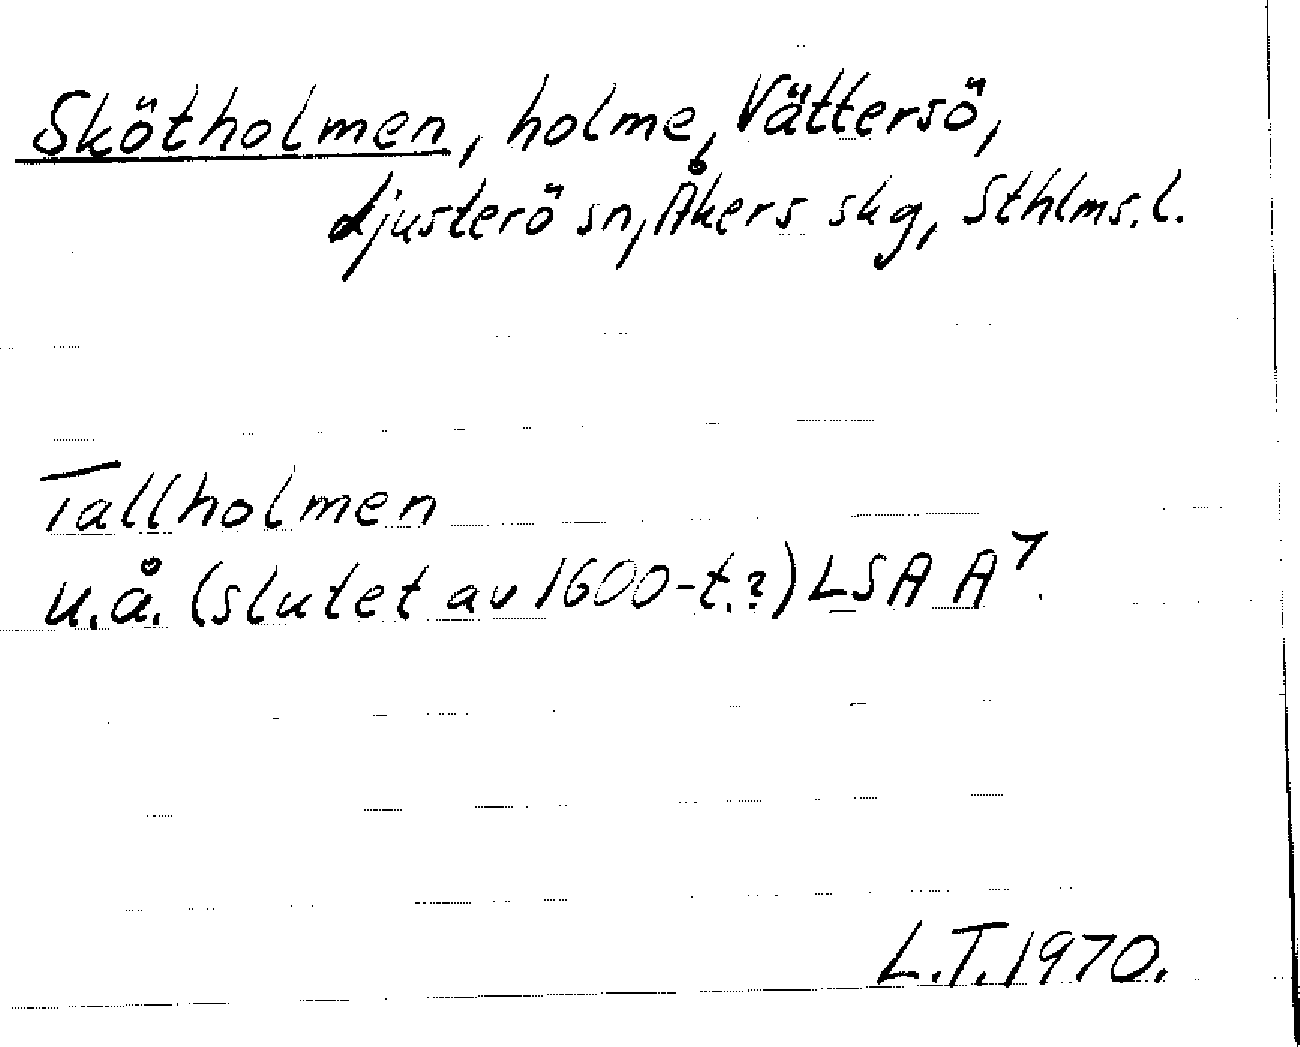 Skötholmen, holme, Vättersö,
Ljusterö sn, Åkers skg, Sthlms.l.
Tallholmen
u.å. (slutet av 1600-t.?) LSA A⁷
L.T. 1970.